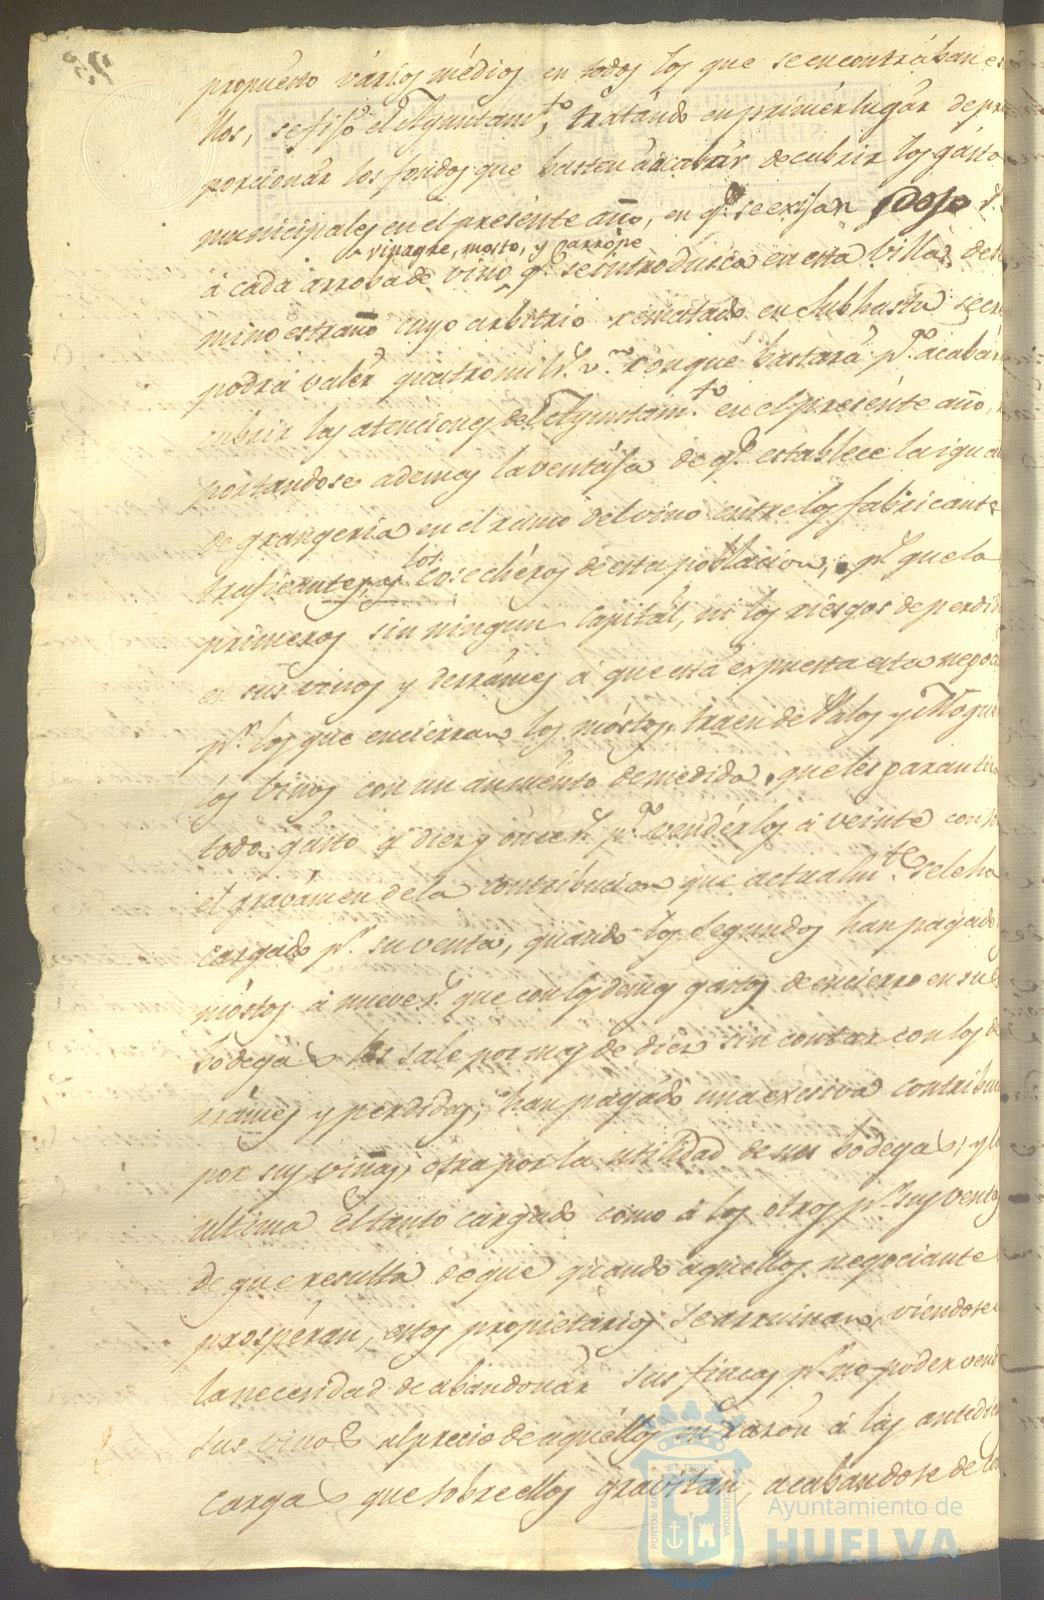 propuesto vários médios en todos los que se encontrában e
llos, se fijó el Ayuntam.to, tratándo en primér lugár de pro
porcionár los fondos que basten á acabár de cubrir los gásto
municipales en el presénte año, en q.e se exijan dos r.
vinagre, mosto, y arrópe
á cada arroba de vino q.e se introdusca en esta Villa, de té
mino estraño cuyo arbitrio rematado en Subhasta se cre
podrá valér quatro mil r.s v.n con que bastará p.a acabár
cubrir las atenciones del Ayuntam.to en el presénte año,
portandose ademas la ventája de q.e establece la iguál
de grangeria en el ramo del vino entre los fabricante
traficantes, y los Cosechéros de esta poblacion, p.r que lo
primeros sin ningun Capitál, ni los riésgos de perdid
en sus vinos y derrámes á que está expuesta esta negoc
p.a los que enciérran los móstos, traen de Palos y Mogue
los Vinos con un auménto de medida, que les garantiz
todo gásto á diez y once r.s p.a vendérlos á veinte con so
el gravámen de la contribucion que actualm.te se le ha
cargado p.r su venta, quando los Segundos han pagado
móstos á nueve r.s que con los demas gastos de encierro en su
bodega les sale por mas de diez sin contar con los de
rrámes y perdidas; han pagádo una exesiva contribu
por sus viñas, otra por la utilidad de sus bodegas, y
ultima el tanto cargado como á los otros p.r sus ventas
de que resulta de que quando aquellos negociante
prospéran, estos propietários se arruinan, viendose
la necesidad de abandonár sus fincas p.r no poder vend
sus vinos al precio de aquéllos en razón á las antedic
cargas que sobre ellos gravitan, acabandose de
Ayuntamiento de
HUELVA